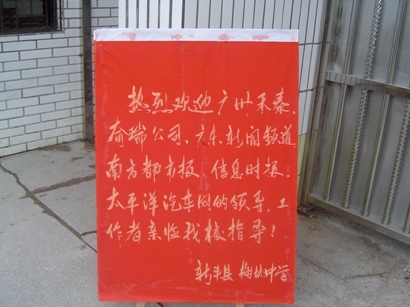 热烈欢迎广州禾泰、
奇瑞公司、广东新闻频道
南方都市报、信息时报、
太平洋汽车网的领导、工
作者亲临我校指导！
新丰县 梅坑中学